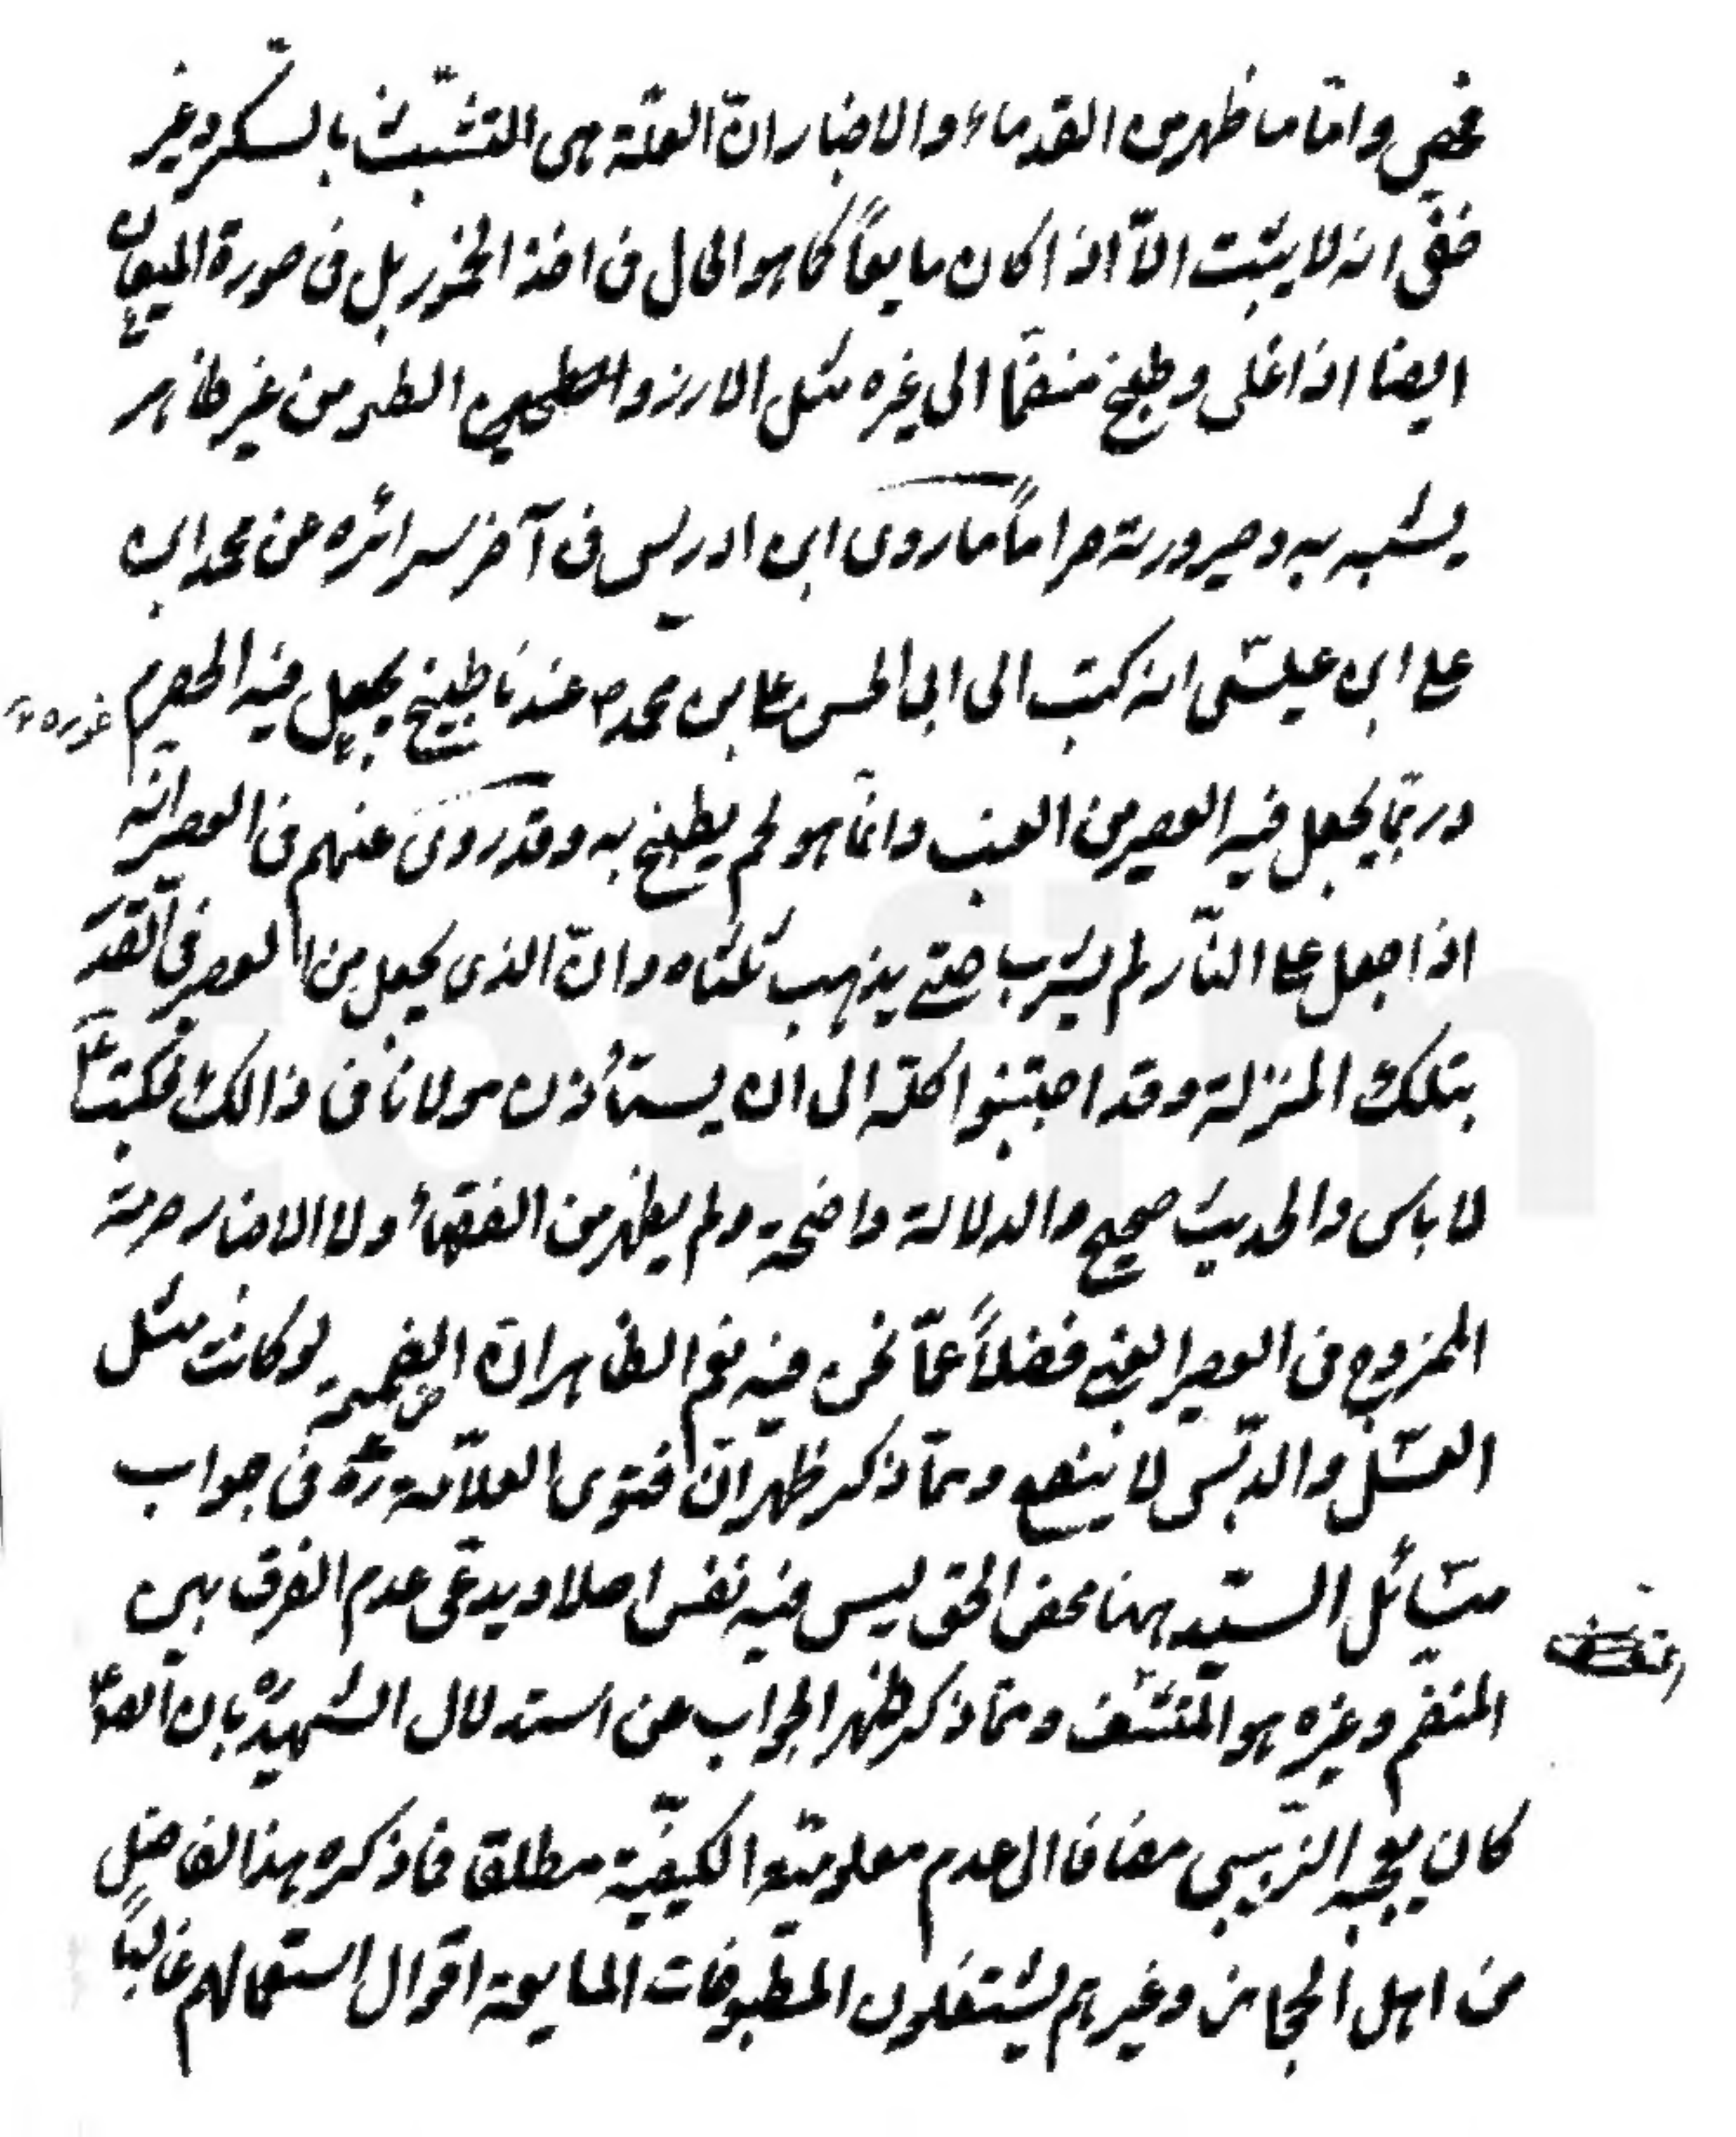 واما ما ظهر من القدماء والاخبار ان العلّة هى التشبث بالسكر وغير
خفى انه لا يثبت الّا اذا كان مايعاً كما هو الحال فى اخذ الخمور بل فى صورة الميعان
ايضا اذا غلى وطبخ منضمّا الى غيره مثل الارز و الطير من غير ظاهر
يشبه به وصيرورته حراماً ما روى ابن ادريس فى آخر سرائره عن محمد ابن
على ابن عيسى انه كتب الى ابى الحسن على بن محمد ص عندنا طبيخ يجعل فيه الحصرم
غوره
وربّما يجعل فيه العصير من العنب وانّما هو لحم يطبخ به وقد روى عنهم فى العصير انّه
اذا جعل على النّار لم يشرب حتى يذهب ثلثاه وانّ الذى يجعل من العصير فى القدر
بتلك المنزلة وقد اجتنبوا اكله الى ان يستأذن مولانا فى ذالك فكتب ع
لا باس والحديث صحيح والدلالة واضحة ولم يظهر من الفقهاء ولا الاخبار حرمة
الممزوج من العصير ايضا فضلاً عمّا نحن فيه نعم الظاهر انّ الضميمة لو كانت مثل
العسل والدبس لا ينفع وممّا ذكر ظهر انّ فتوى العلّامة ره فى جواب
مسائل السيّد مهنا محض الحق ليس فيه نقض اصلا ويدعى عدم الفرق بين
المنضم وغيره هو وممّا ذكر ظهر الجواب عن استدلال الشهيد ره بان
كان يعجبه الزبيبى مضافا الى عدم معلومية الكيفيّة مطلقا فما ذكره هذا الفاضل
من اهل الحجاز وغيرهم يشتغلون المطبوخات المايعة اقوال استعمالهم غالباً